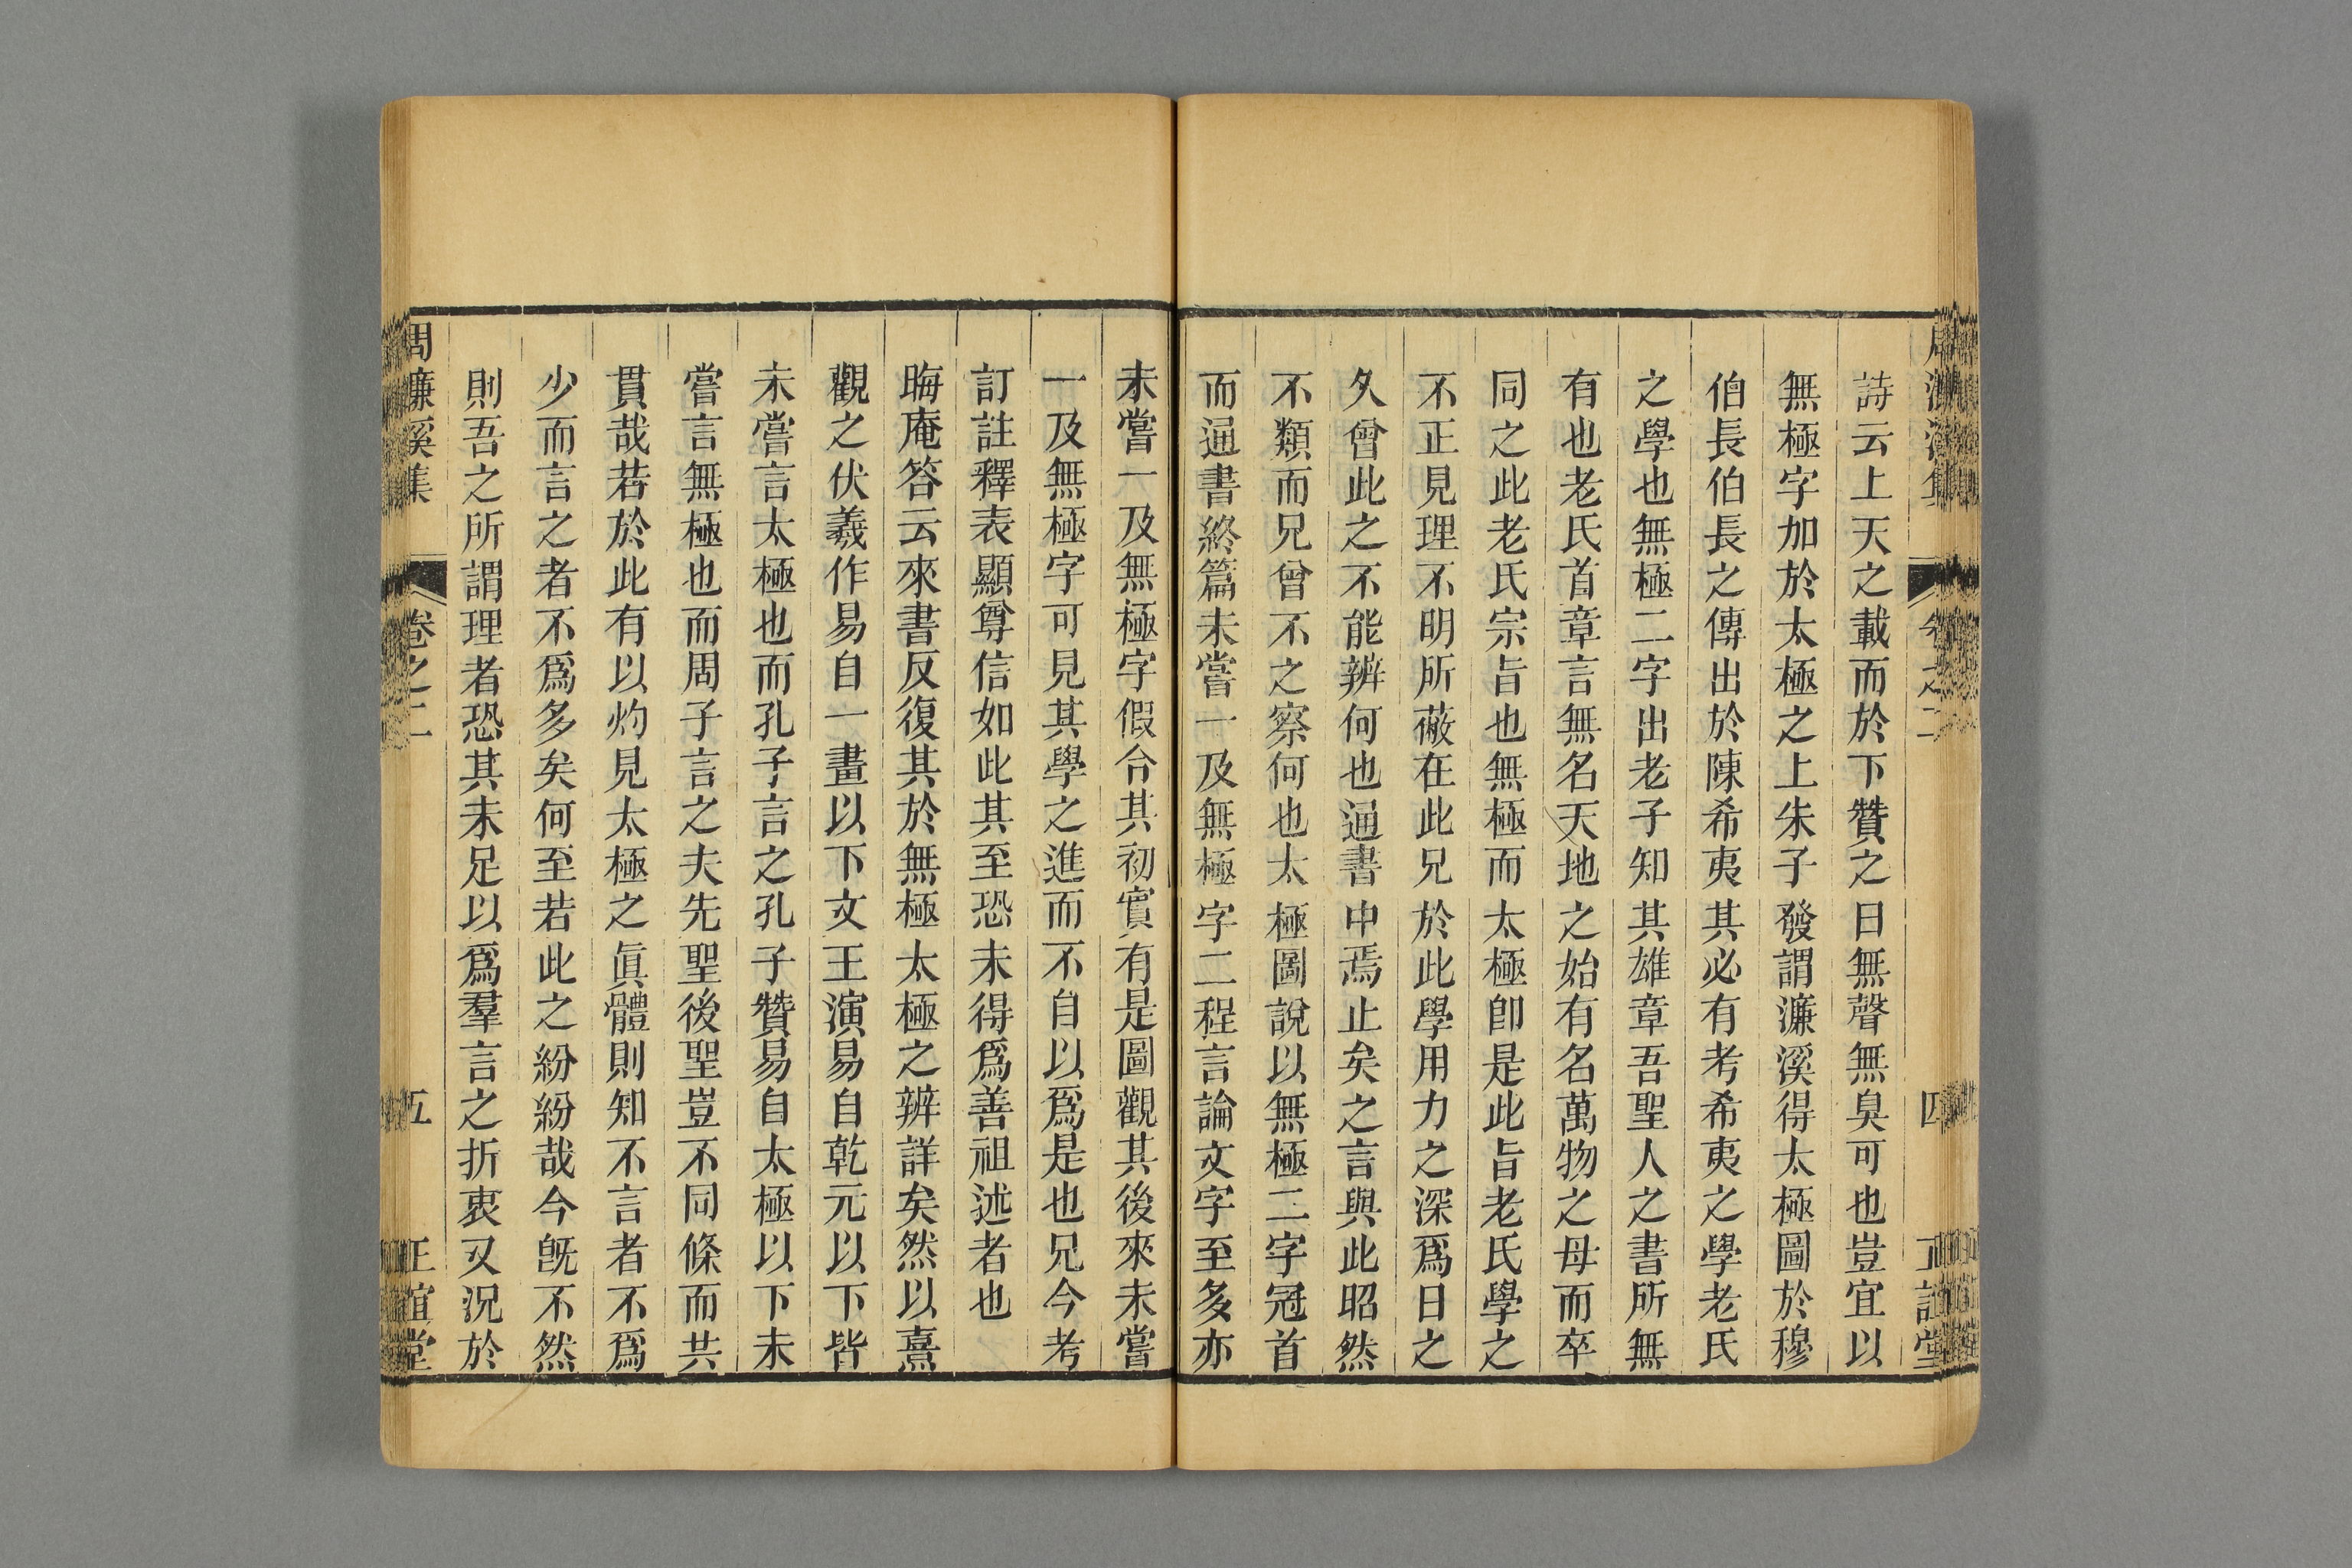 詩云上天之載而於下贊之曰無聲無臭可也豈宜以
無極字加於太極之上朱子發謂濂溪得太極圖於穆
伯長伯長之傳出於陳希夷其必有考希夷之學老氏
之學也無極二字出老子知其雄章吾聖人之書所無
有也老氏首章言無名天地之始有名萬物之母而卒
同之此老氏宗旨也無極而太極卽是此旨老氏學之
不正見理不明所蔽在此兄於此學用力之深爲日之
久曾此之不能辨何也通書中焉止矣之言與此昭然
不類而兄曾不之察何也太極圖說以無極二字冠首
而通書終篇未嘗一及無極字二程言論文字至多亦
未嘗一及無極字假令其初實有是圖觀其後來未嘗
一及無極字可見其學之進而不自以爲是也兄今考
訂註釋表顯尊信如此其至恐未得爲善祖述者也
晦庵答云來書反復其於無極太極之辨詳矣然以熹
觀之伏羲作易自一畫以下文王演易自乾元以下皆
未嘗言太極也而孔子言之孔子贊易自太極以下未
嘗言無極也而周子言之夫先聖後聖豈不同條而共
貫哉若於此有以灼見太極之眞體則知不言者不爲
少而言之者不爲多矣何至若此之紛紛哉今旣不然
則吾之所謂理者恐其未足以爲羣言之折衷又況於
周濂溪集 卷之二 五 正誼堂